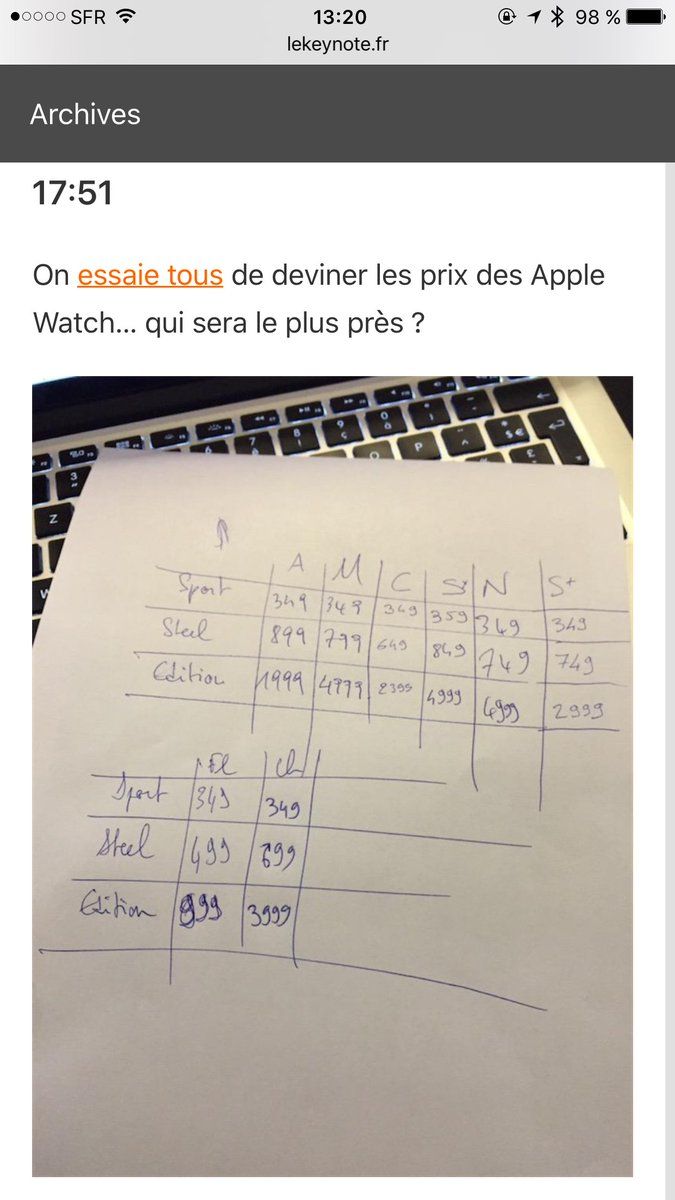 SFR 13:20 98 %
lekeynote.fr
Archives
17:51
On essaie tous de deviner les prix des Apple
Watch... qui sera le plus près ?
A M C N S+
Sport 349 349 349 359 349 349
Steel 899 799 649 849 749 749
Edition 1999 4999 4999 4999 2999
El Ch
Sport 349 349
Steel 499 699
Edition 999 3999